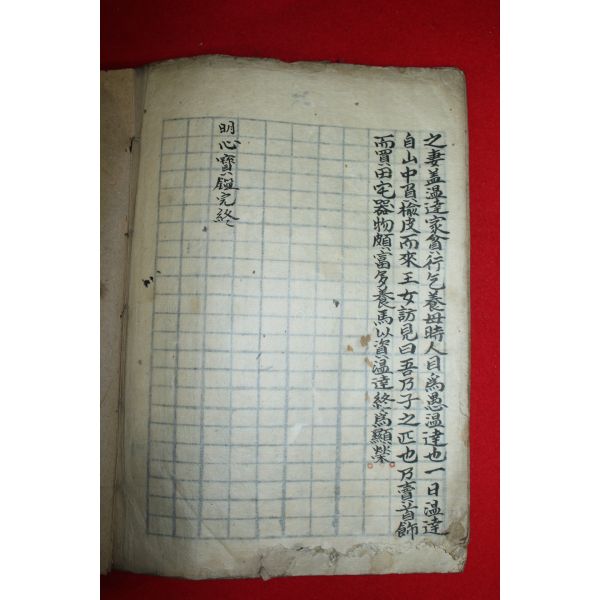 之妻盖温達家貧行乞養母時人目爲愚温達也一日温達
自山中負楡皮而來王女訪見曰吾乃子之匹也乃賣首飾
而買田宅器物頗富多養馬以資温達終爲顯榮
明心寶鑑完終